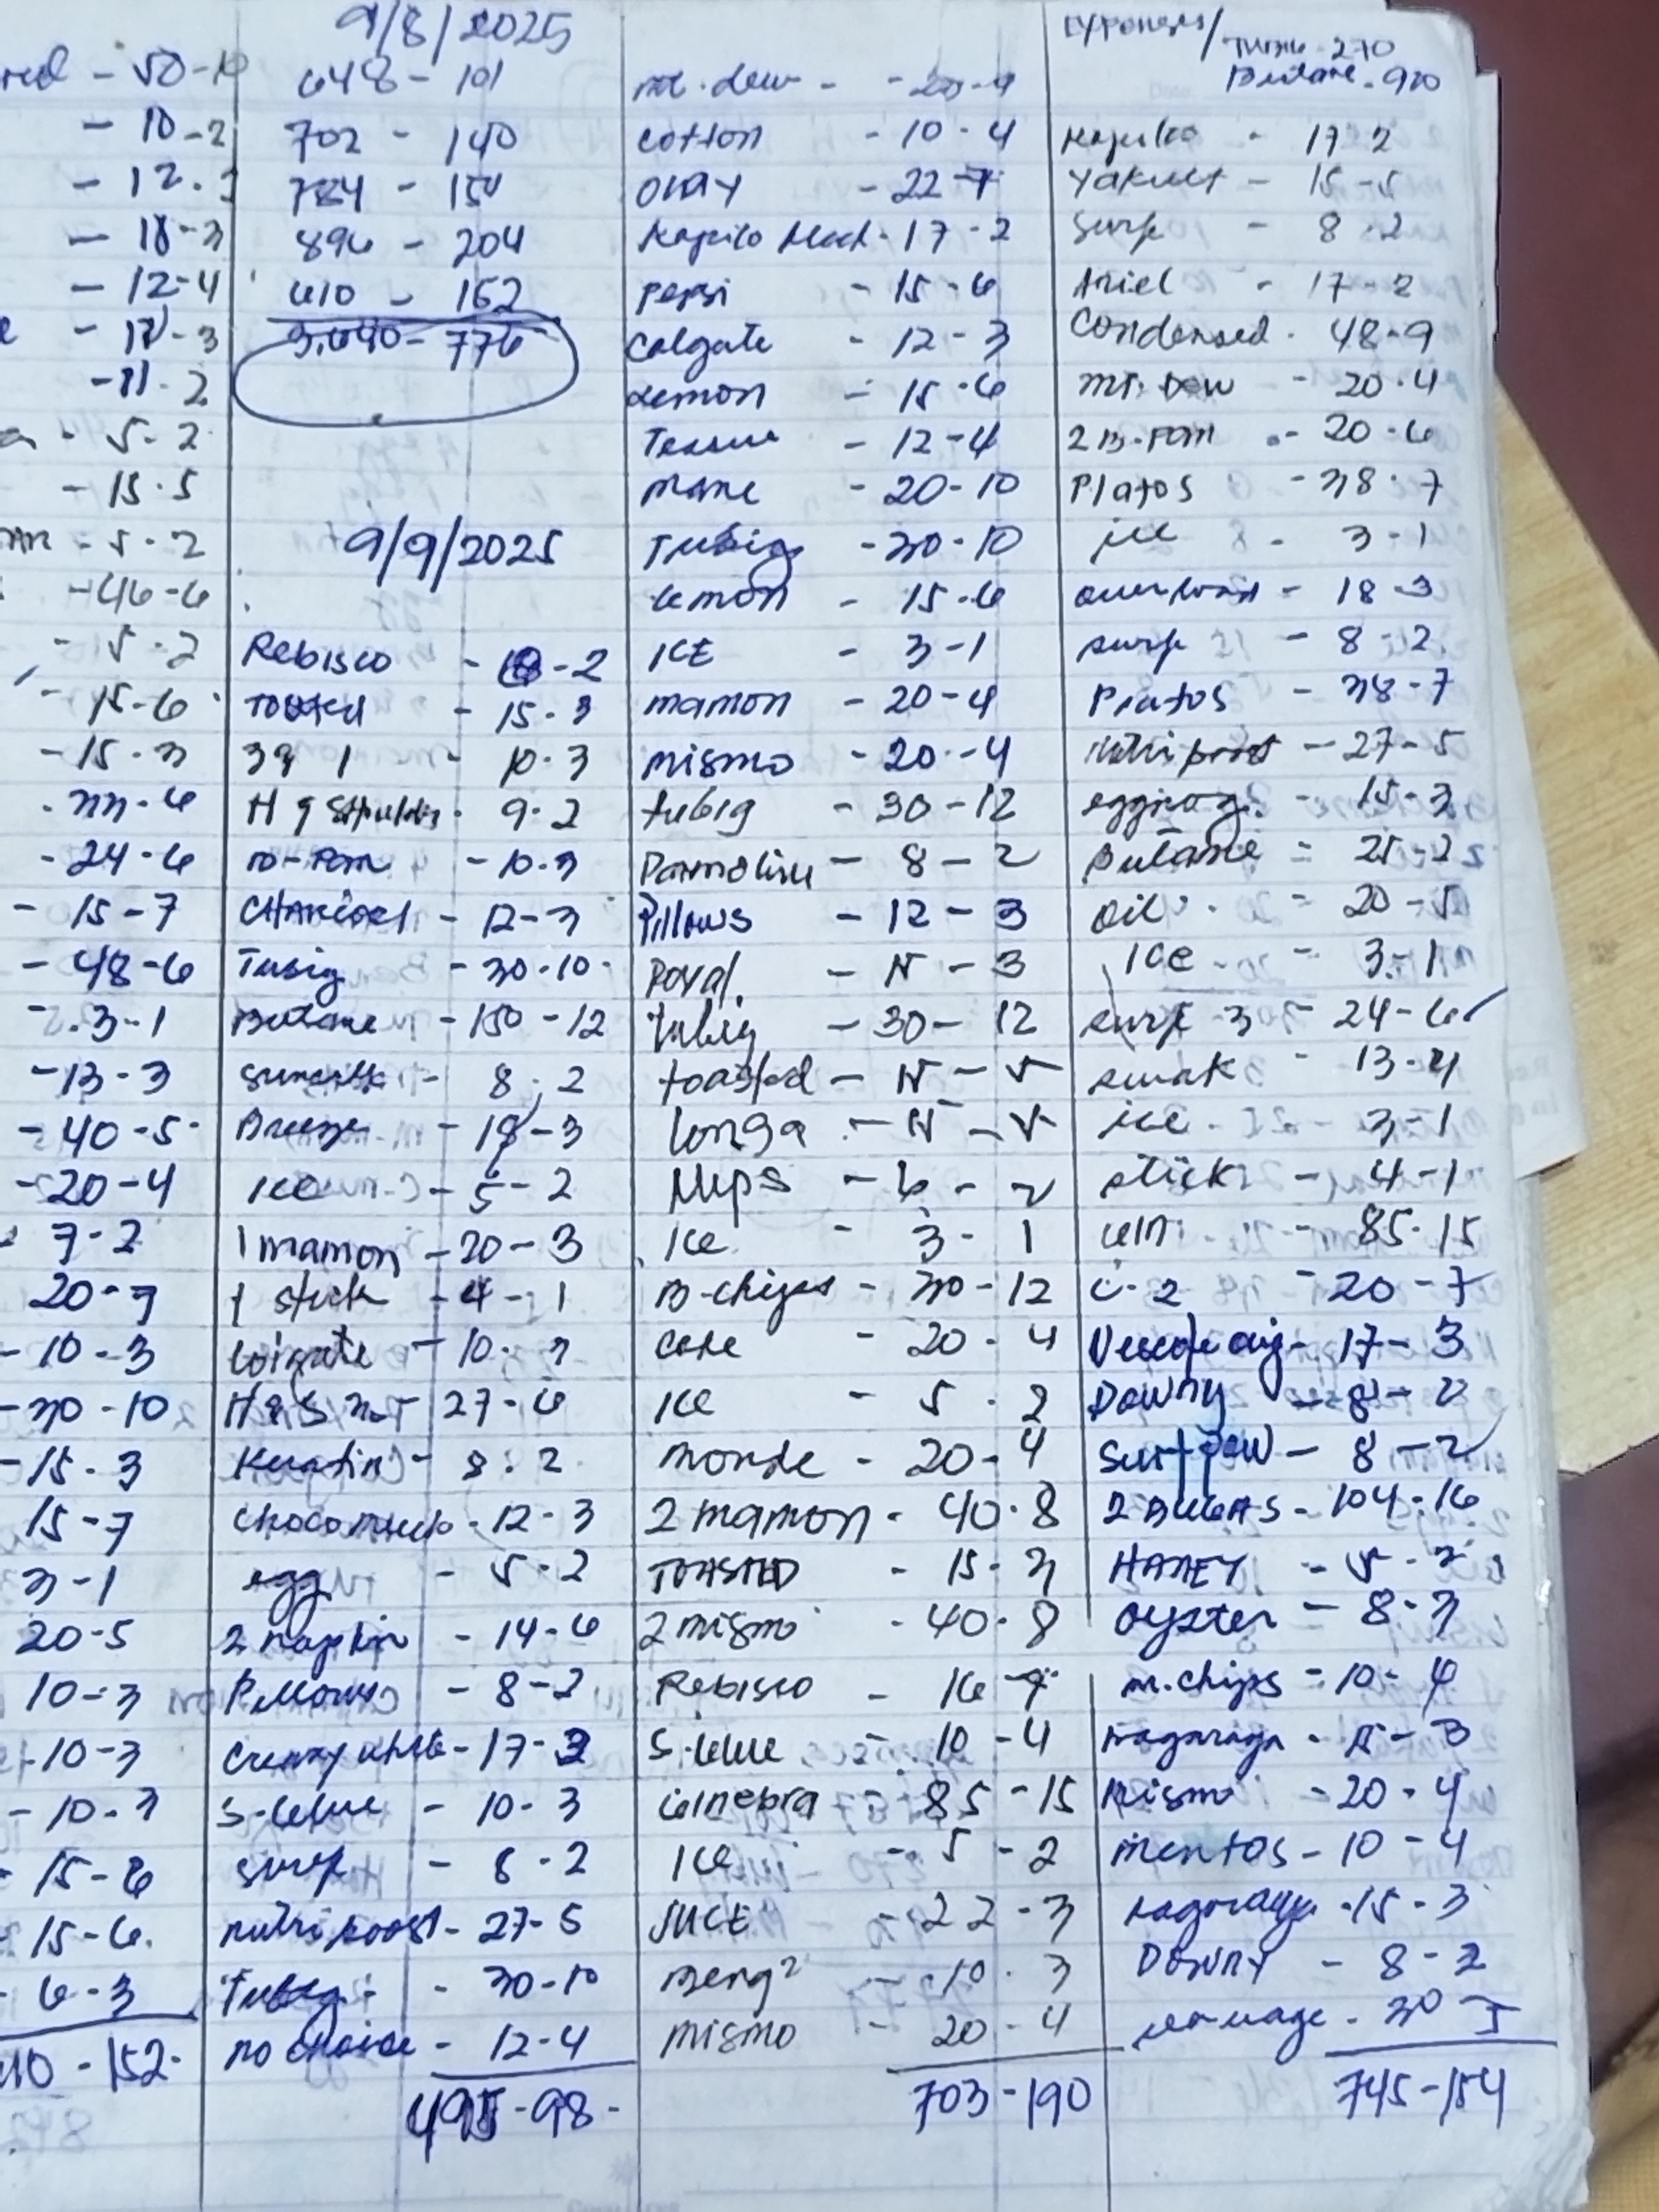 - 50-10
- 10-2
- 12.
- 18-3
- 12-4
- 12-3
-11-2
- 5-2
- 15.5
- 5-2
-46-6
- 5-2
- 15-6
- 15.3
. 33-6
- 24-6
- 15-7
- 48-6
-.3-1
-13-3
-40-5-
-20-4
7-2
20-7
- 10-3
-30-10
-15.3
15-7
3-1
20-5
10-3
-10-3
- 10-3
- 15-6
- 15-6.
- 6-3
10-152-
9/8/2025
648 - 101
702 - 140
784 -
896 - 204
610 - 152
3,640-776
9/9/2025
Rebisco - -2
- 15-3
10.3
9.2
- 10.3
Charcoal - 12-3
Tubig - 30-10-
Butane - 150-12
Sunsilk - 8.2
Breeze - 18-3
ice - 5-2
1 mamon - 20-3
1 stick - 4-1
Colgate - 10-3
H&S - 27-6
Keratin - 8.2
- 12-3
egg - 5-2
2 napkin - 14-6
Pillows - 8-2
Creamy white - 17-3
S-blue - 10-3
Surf - 8-2
nutriboost - 27-5
Tubig - 30-10
no choice - 12-4
495-98-
mt. dew - - 20-4
cotton - 10-4
okay - 22-7
Kopiko black - 17-2
Pepsi - 15-6
Colgate - 12-3
Lemon - 15-6
- 12-4
- 20-10
Tubig - 30-10
Lemon - 15-6
ICE - 3-1
mamon - 20-4
mismo - 20-4
tubig - 30-12
Palmolive - 8-2
Pillows - 12-3
Royal - 15-3
tubig - 30-12
toasted - 15-5
longa - 15-5
Nips - 6-2
Ice - 3-1
B-chips - 30-12
Coke - 20-4
Ice - 5-2
monde - 20-4
2 mamon - 40.8
TOASTED - 15-3
2 mismo - 40.8
Rebisco - 16-4
S-blue - 10-4
Ginebra - 85-15
Ice - 5-2
JUICE - 22-3
Beng2 - 10.3
mismo - 20-4
703-190
Expenses/ Tubig - 270
Butane - 920
Kopiko - 17-2
Yakult - 15-5
Surf - 8.2
Ariel - 17-2
Condensed - 48-9
mt. Dew - 20.4
- 20.6
Piatos - 38-7
ice - 3-1
overload - 18-3
surf - 8-2
Piatos - 38-7
nutriboost - 27-5
eggnog - 15-3
Butane - 25-
oil - 20-5
ICe - 3-1
surf 3 - 24-6
swak - 13-4
ice - 3-1
stick - 4-1
GIN - 85-15
C-2 - 20-7
- 17-3
Downy - 8-2
Surf pow - 8-2
- 104-16
HANEY - 5-2
Oyster - 8-3
m.chips - 10-4
kagaraga - 15-3
Mismo - 20-4
mentos - 10-4
kagaraga - 15-3
Downy - 8-2
sausage - 30-5
745-154